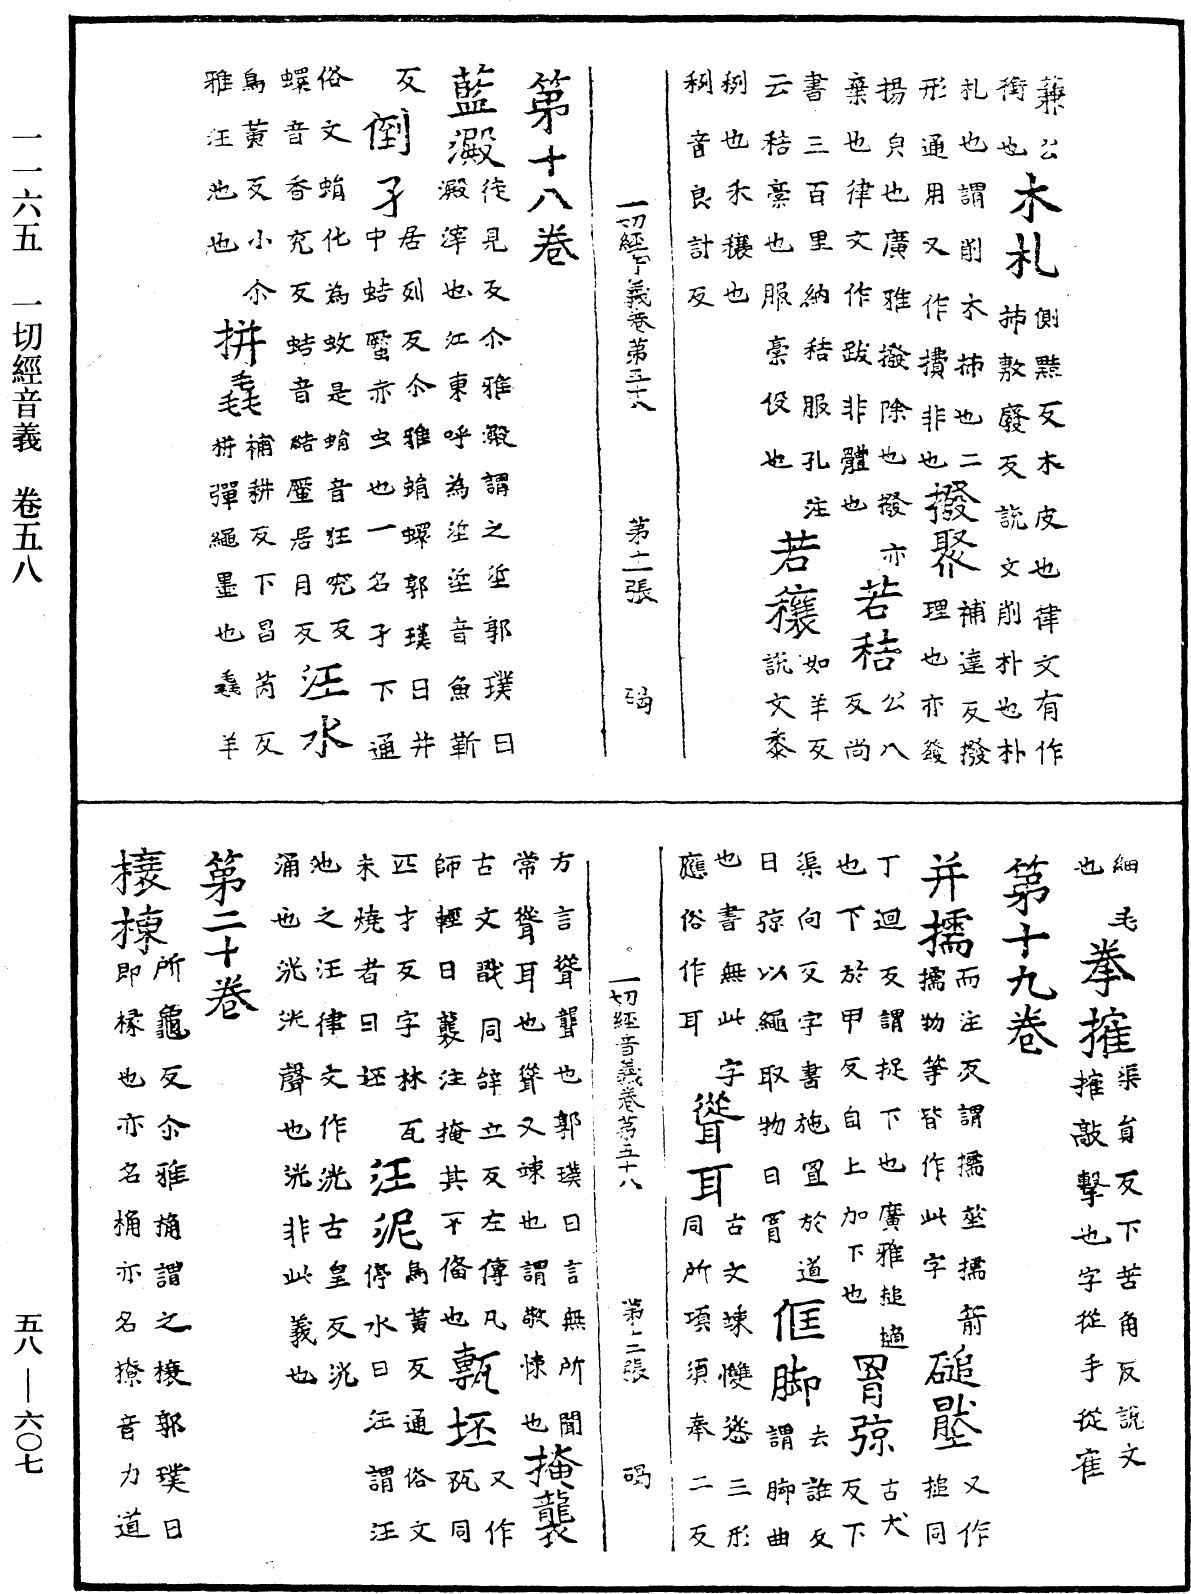 一一六五　一切經音義　卷五八
五八——六〇七
蒹公
衡也木札側黠反木皮也律文有作
札也謂削木柹也二柹敷廢反說文削朴也朴
形通用又作撌非也撥聚補達反撥
揚㒵也廣雅撥除也撥亦理也亦發
棄也律文作跋非體也若秸公八反尚
書三百里納秸服孔注如羊反
云秸稾也服稾役也若穰說文黍
𥞥也禾穰也
𥞥音良計反
一切經音義卷第五十八　第十一張　碣
第十八卷
藍澱徒見反尒雅澱謂之垽郭璞曰
澱滓也江東呼為垽垽音魚靳
反倒孑居列反尒雅蜎蠉郭璞曰井
中蛣蟩亦虫也一名孑下通
俗文蜎化為蚊是蜎音狂兖反
蠉音香兖反蛣音結蟩居月反汪水
烏黃反小尒
雅汪池也拼毳補耕反下昌芮反
拼彈繩墨也毳羊
細毛
也拳搉渠員反下苦角反說文
搉敲擊也字從手從隺
第十九卷
并擩而注反謂擩莝擩箭
擩物等皆作此字磓壓又作搥同
丁迴反謂捉下也廣雅搥擿
也下於甲反自上加下也罥弶古犬反下
渠向反字書施罥於道
曰弶以繩取物曰罥𠊧脚謂脚曲
也書無此字去誑反
應俗作耳聳耳古文竦㩳慫三形
同所項須奉二反
方言聳聾也郭璞曰言無所聞
常聳耳也聳又竦也謂敬悚也掩襲
古文戢同辝立反左傳凡
師輕曰襲注掩其不俻也甎坯又作㼡同
匹才反字林瓦
未燒者曰坯汪泥烏黃反通俗文
停水曰汪謂汪
池之汪律文作洸古皇反洸
涌也洸洸聲也洸非此義也
第二十卷
榱棟所龜反尒雅桷謂之榱郭璞曰
即椽也亦名桷亦名橑音力道
一切經音義卷第五十八　第十二張　碣